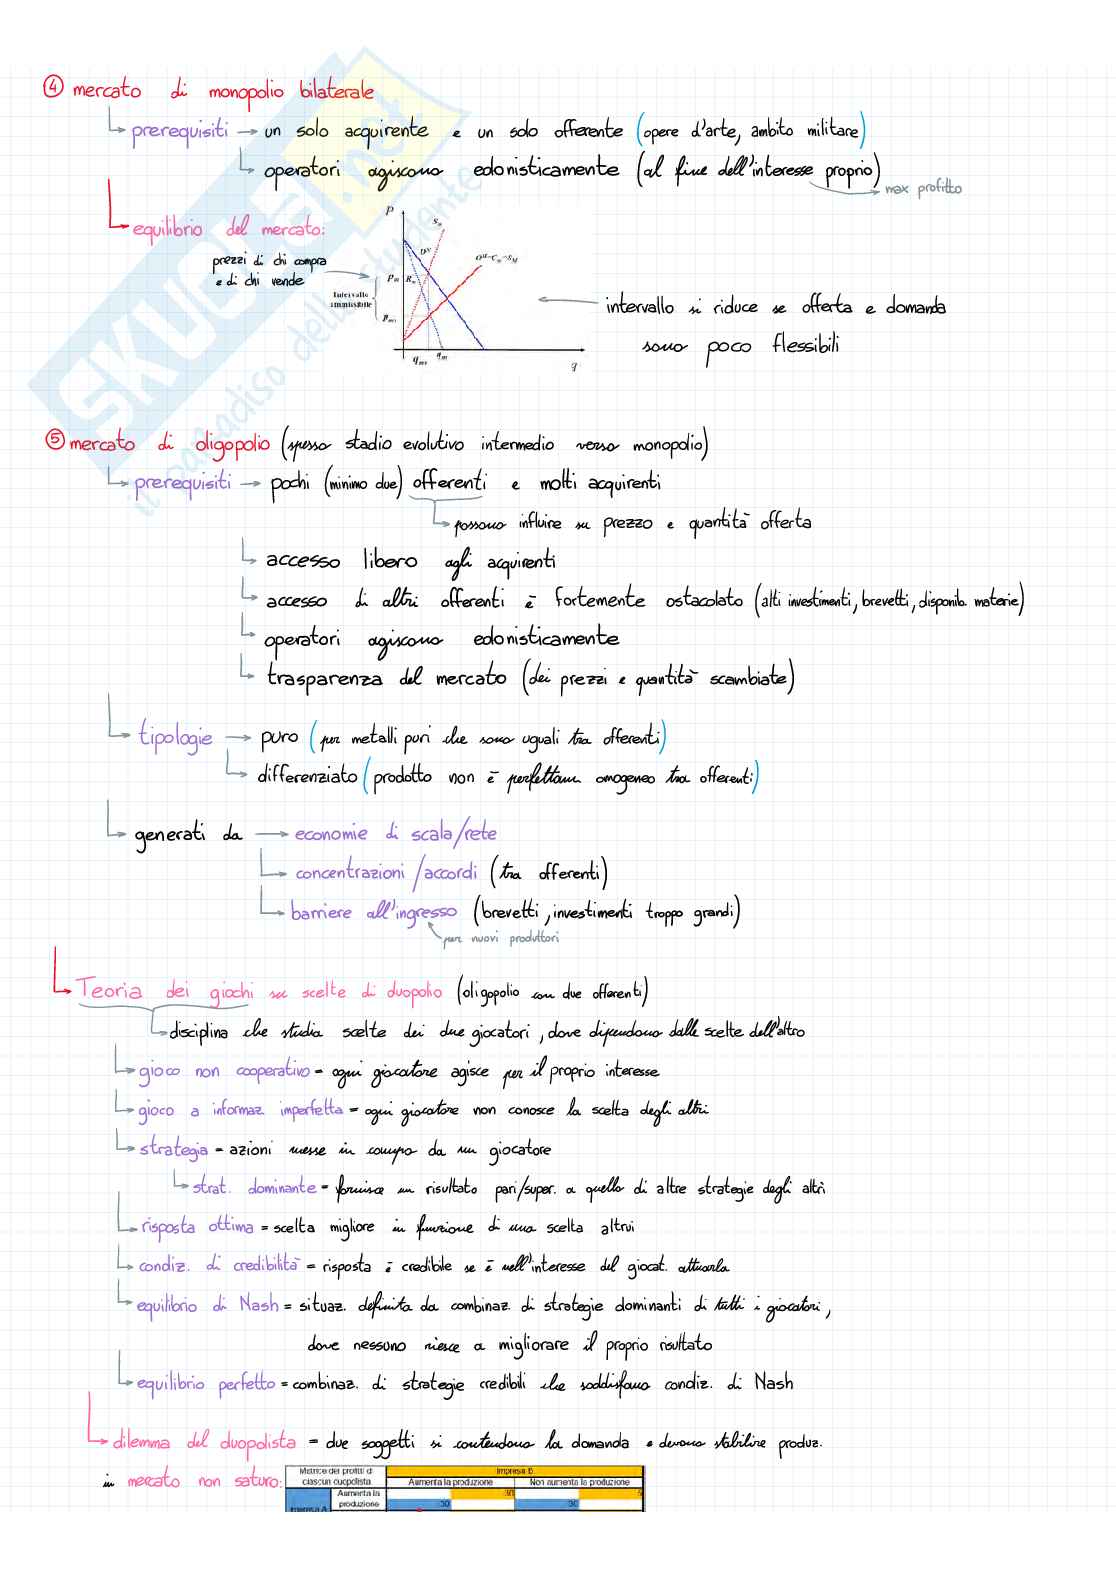 ④ mercato di monopolio bilaterale
prerequisiti → un solo acquirente e un solo offerente (opere d'arte, ambito militare)
operatori agiscono edonisticamente (al fine dell'interesse proprio)
max profitto
equilibrio del mercato:
prezzi di chi compra
e di chi vende
Intervallo
ammissibile
p
q
intervallo si riduce se offerta e domanda
sono poco flessibili
⑤ mercato di oligopolio (spesso stadio evolutivo intermedio verso monopolio)
prerequisiti → pochi (minimo due) offerenti e molti acquirenti
possono influire su prezzo e quantità offerta
accesso libero agli acquirenti
accesso di altri offerenti è fortemente ostacolato (alti investimenti, brevetti, disponib. materie)
operatori agiscono edonisticamente
trasparenza del mercato (dei prezzi e quantità scambiate)
tipologie → puro (per metalli puri che sono uguali tra offerenti)
differenziato (prodotto non è perfettam omogeneo tra offerenti)
generati da → economie di scala/rete
concentrazioni/accordi (tra offerenti)
barriere all'ingresso (brevetti, investimenti troppo grandi)
per nuovi produttori
Teoria dei giochi su scelte di duopolio (oligopolio con due offerenti)
disciplina che studia scelte dei due giocatori, dove dipendono dalle scelte dell'altro
gioco non cooperativo = ogni giocatore agisce per il proprio interesse
gioco a informaz imperfetta = ogni giocatore non conosce la scelta degli altri
strategia = azioni messe in campo da un giocatore
strat. dominante = fornisce un risultato pari/super. a quello di altre strategie degli altri
risposta ottima = scelta migliore in funzione di una scelta altrui
condiz. di credibilità = risposta è credibile se è nell'interesse del giocat. attuarla
equilibrio di Nash = situaz. definita da combinaz. di strategie dominanti di tutti i giocatori,
dove nessuno riesce a migliorare il proprio risultato
equilibrio perfetto = combinaz. di strategie credibili che soddisfano condiz. di Nash
dilemma del duopolista = due soggetti si contendono la domanda e devono stabilire produz.
in mercato non saturo:
Matrice dei profitti di
ciascun duopolista
Impresa B
Aumenta la produzione
Non aumenta la produzione
Impresa A
Aumenta la
produzione
30
30
SKUOLA.net
il paradiso dello studente